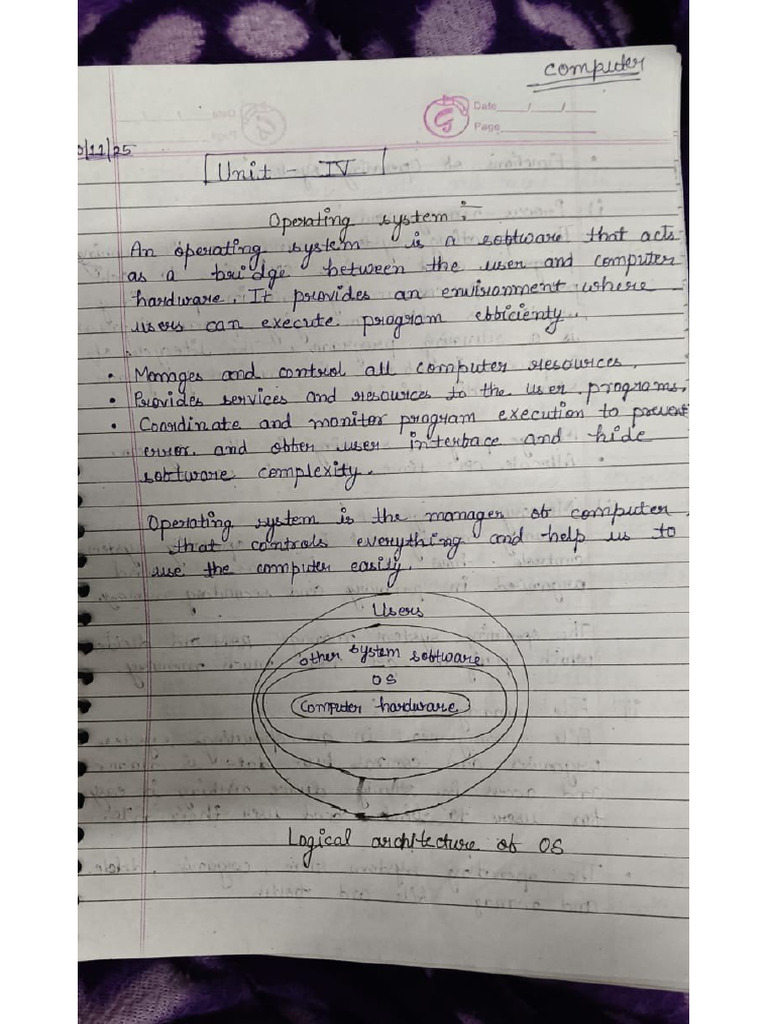 computer
Date / /
Page
/11/25
Unit - IV
Operating system :-
An operating system is a software that acts
as a bridge between the user and computer
hardware. It provides an environment where
users can execute program efficienty.
• Manages and control all computer resources.
• Provides services and resources to the user programs.
• Coordinate and monitor program execution to prevent
error and offer user interface and hide
software complexity.
Operating system is the manager of computer
that controls everything and help us to
use the computer easily.
Users
other system software
OS
Computer hardware
Logical architecture of OS